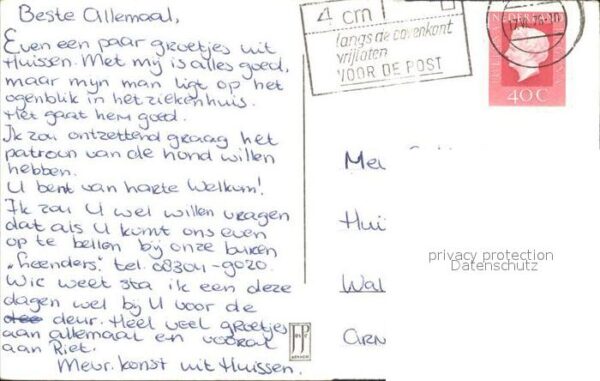 Beste Allemaal,
Even een paar groetjes uit
Huissen. Met mij is alles goed,
maar mijn man ligt op het
ogenblik in het ziekenhuis.
Het gaat hem goed.
Ik zou ontzettend graag het
patroon van de hond willen
hebben.
U bent van harte Welkum!
Ik zou U wel willen vragen
dat als U komt ons even
op te bellen bij onze buren
"Leenders". tel. 08304-9020.
Wie weet sta ik een deze
dagen wel bij U voor de
deur. Heel veel groetjes
aan allemaal en vooral
aan Riet.
Mevr. Konst uit Huissen.
4 cm
langs de bovenkant
vrijlaten
VOOR DE POST
NEDERLAND
40 C
Hui
Wal
ARN
privacy protection
Datenschutz